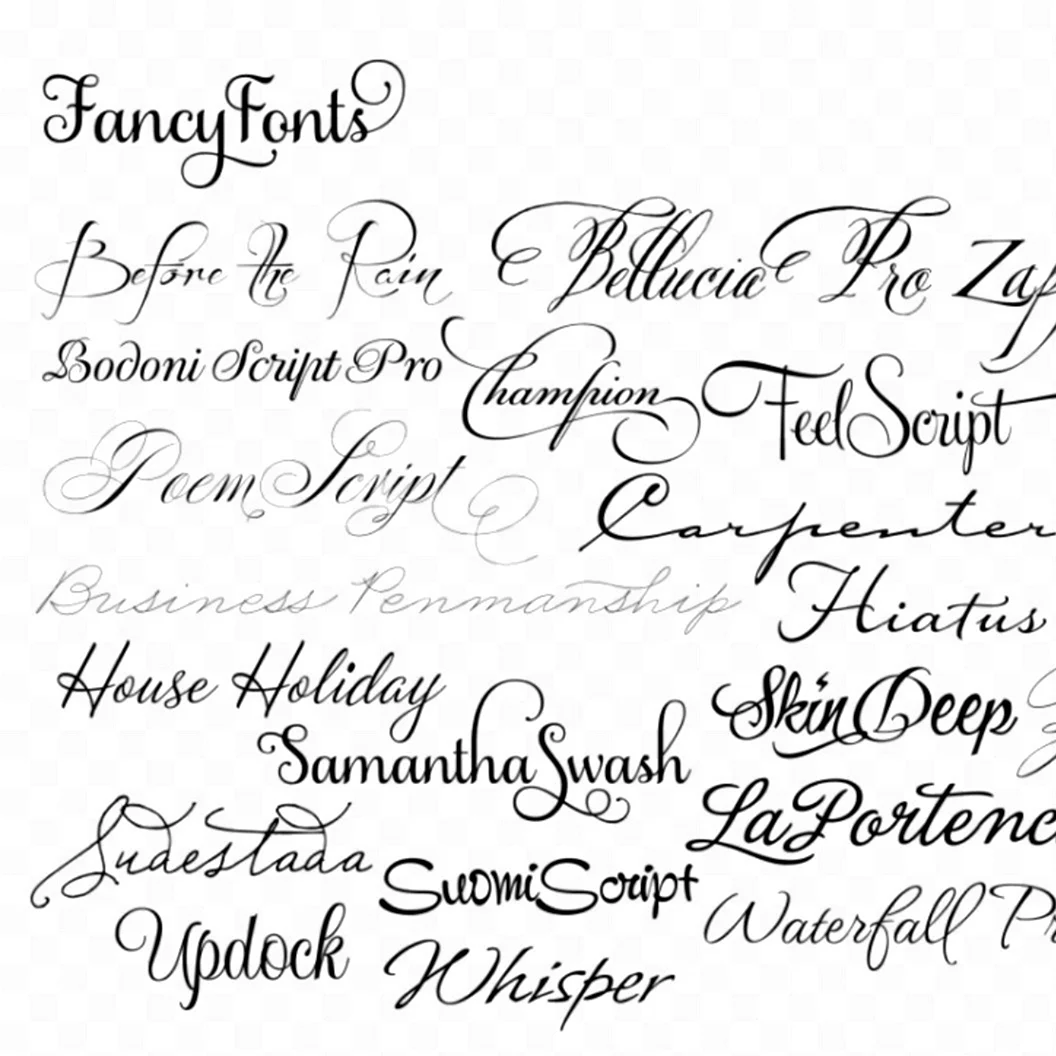 FancyFonts
Before the Rain
Bellucia Pro
Bodoni Script Pro
Champion
FeelScript
Poem Script
Carpenter
Business Penmanship
Hiatus
House Holiday
SkinDeep
SamanthaSwash
LaPortenc
Sudestada
SuomiScript
Waterfall
Updock
Whisper